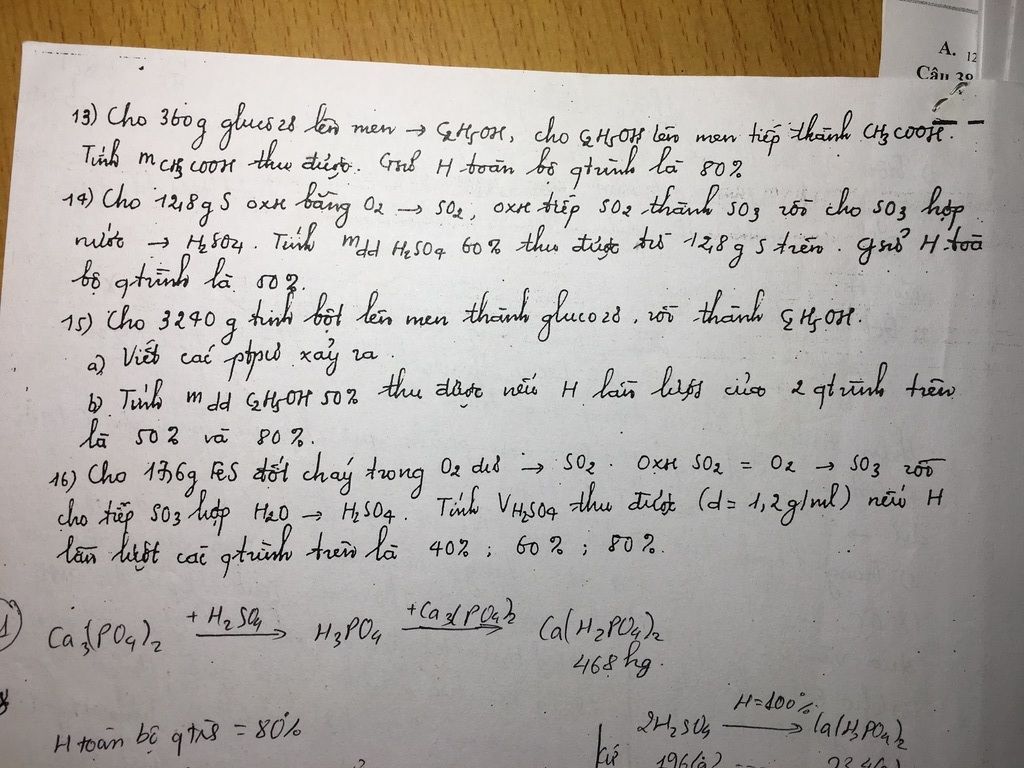 A. 12
Câu 38
13) Cho 360g glucozơ lên men → C2H5OH, cho C2H5OH lên men tiếp thành CH3COOH.
Tính mCH3COOH thu được. Gsử H toàn bộ qtrình là 80%
14) Cho 12,8g S oxh bằng O2 → SO2, oxh tiếp SO2 thành SO3 rồi cho SO3 hợp
nước → H2SO4. Tính mdd H2SO4 60% thu được từ 12,8g S trên. Gsử H toà
bộ qtrình là 50%.
15) Cho 3240g tinh bột lên men thành glucozơ, rồi thành C2H5OH.
a) Viết các ptpư xảy ra.
b) Tính mdd C2H5OH 50% thu được nếu H lần lượt của 2 qtrình trên
là 50% và 80%.
16) Cho 17,6g FeS đốt cháy trong O2 dư → SO2. Oxh SO2 = O2 → SO3 rồi
cho tiếp SO3 hợp H2O → H2SO4. Tính VH2SO4 thu được (d = 1,2g/ml) nếu H
lần lượt các qtrình trên là 40%; 60%; 80%.
1) Ca3(PO4)2 + H2SO4 → H3PO4 + Ca3(PO4)2 → Ca(H2PO4)2
468kg.
H toàn bộ qtrs = 80%
2H2SO4 H=100% → Ca(H2PO4)2
Cứ 196(g) 234(g)